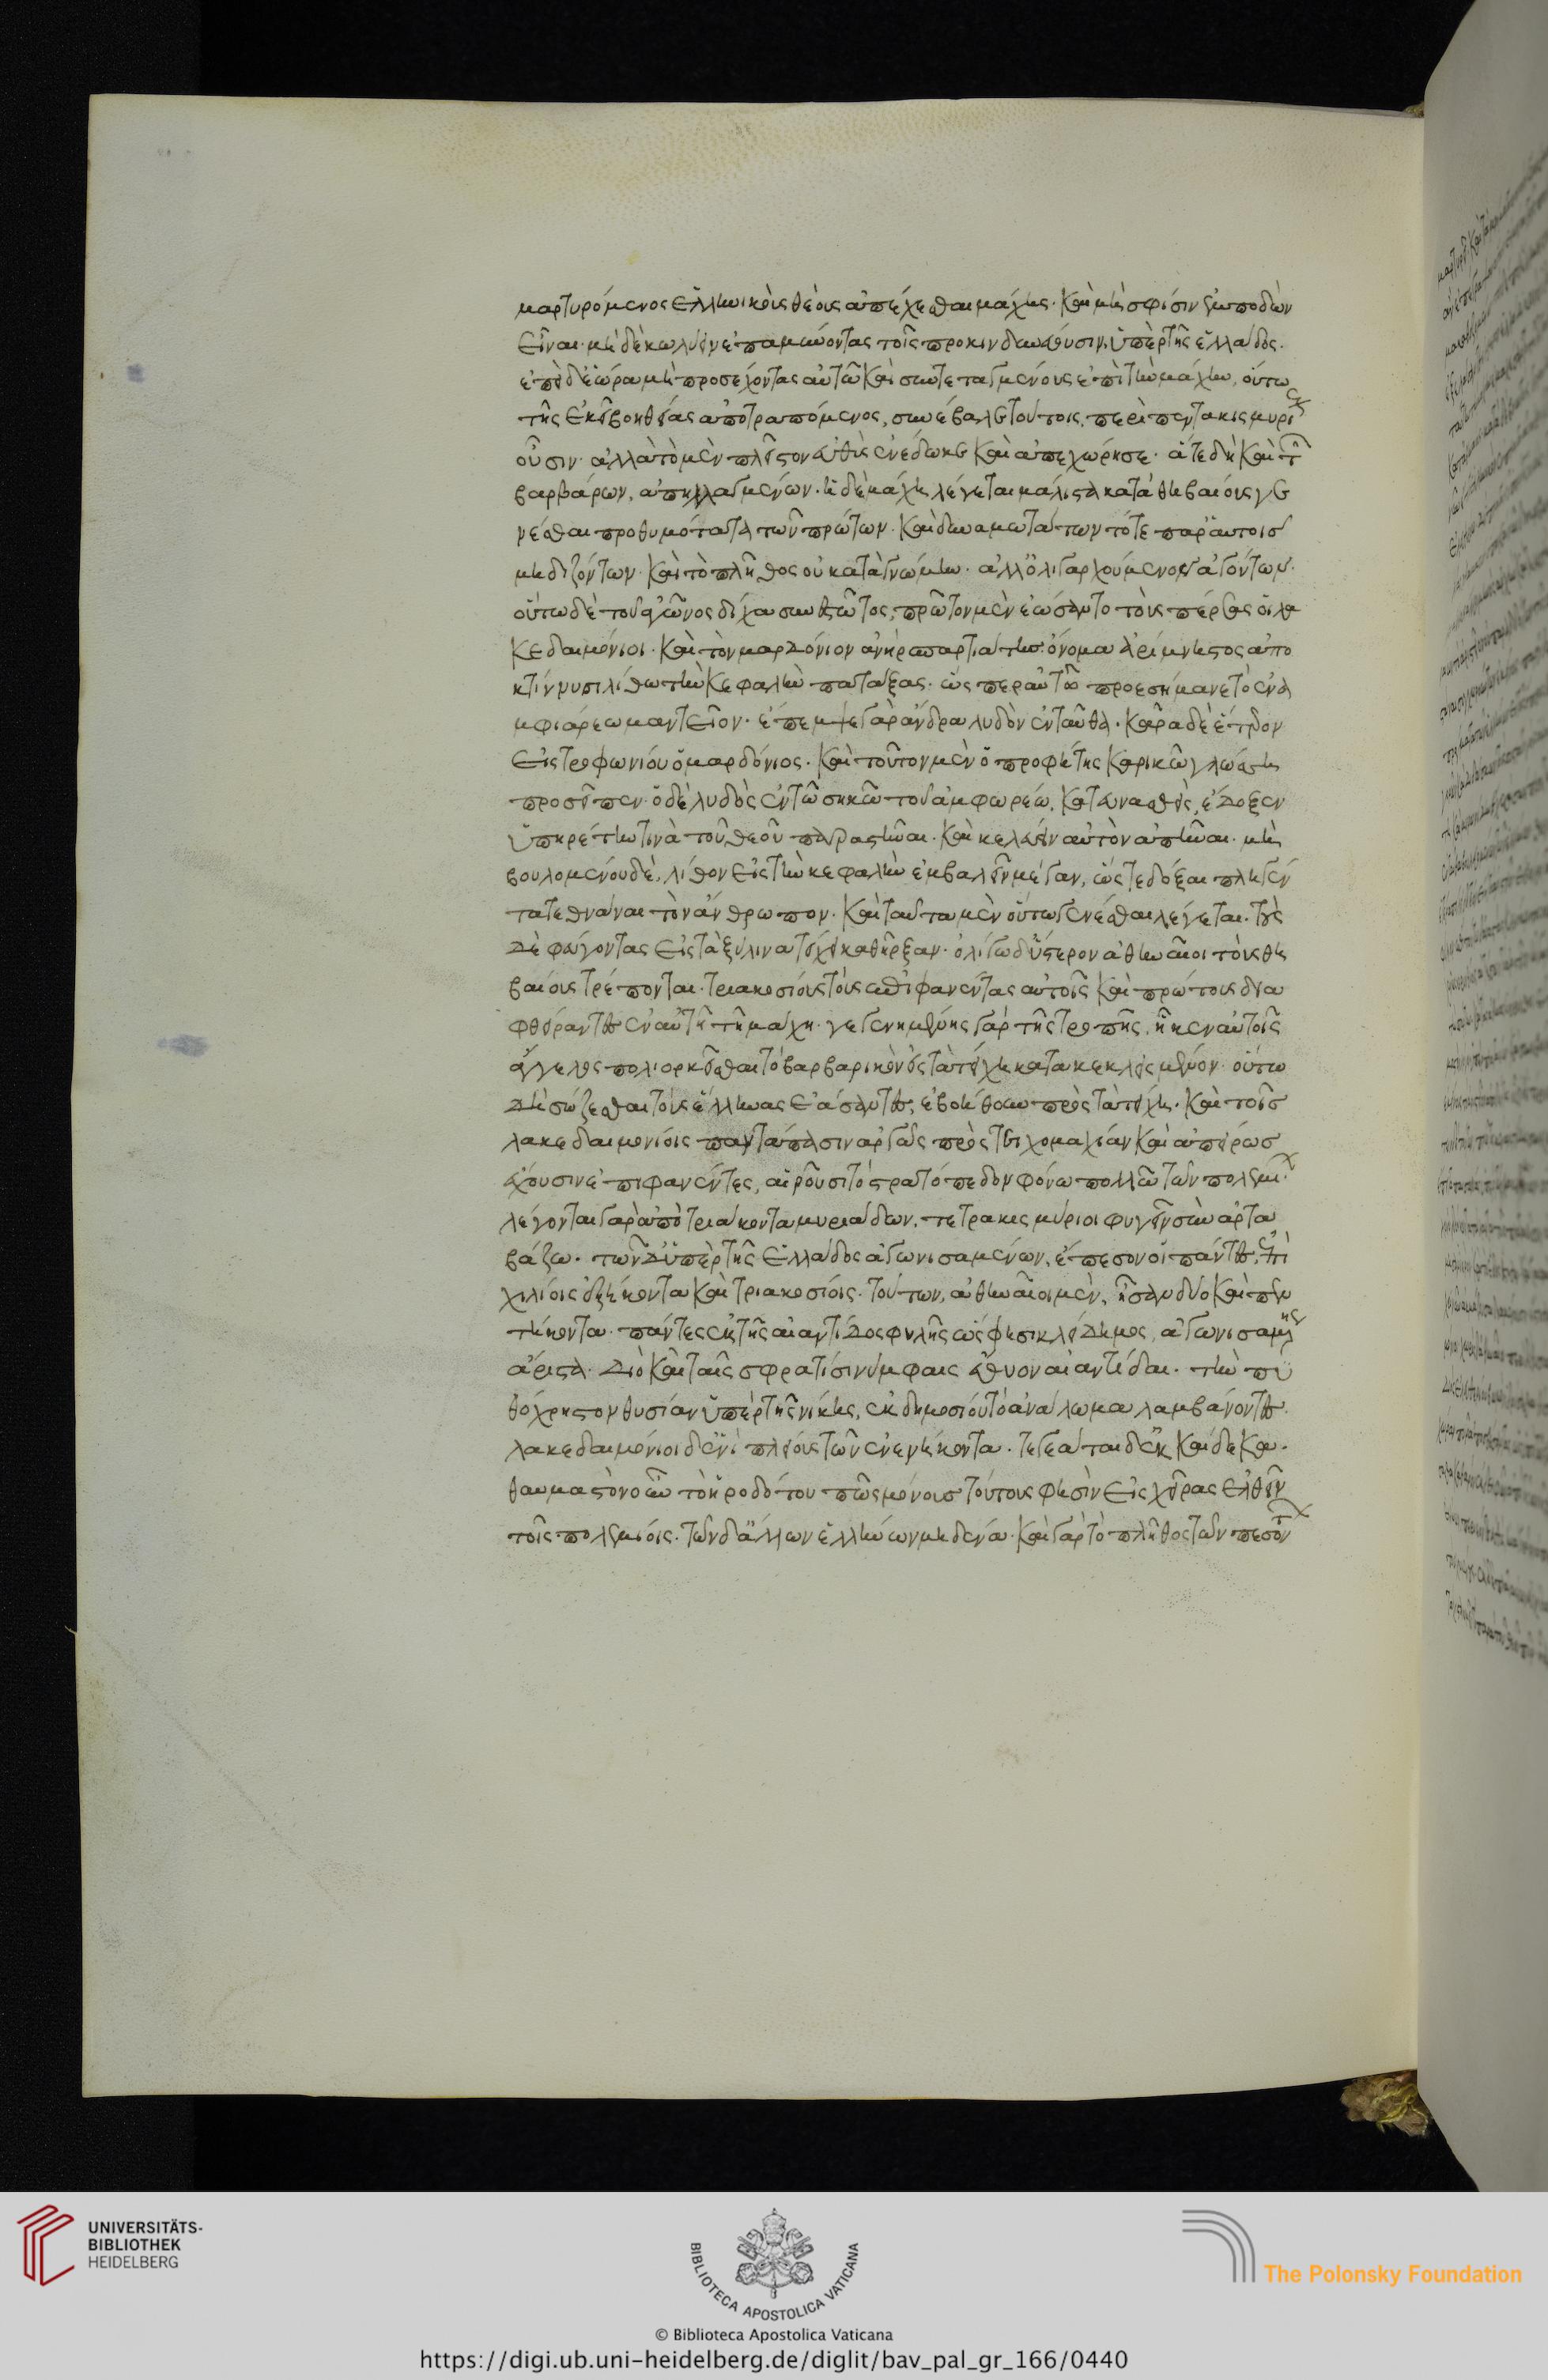 μαρτυρόμενος ἑλληνικοὺς θεοὺς ἀπέχεσθαι μάχης· καὶ μὴ σφίσιν ἐμποδὼν
εἶναι· μὴ δὲ κωλύειν ἐπαμύνοντας τοῖς προκινδυνεύουσιν ὑπὲρ τῆς ἑλλάδος.
ἐπεὶ δ' ἑώρα μὴ προσέχοντας αὐτῶ καὶ συντεταγμένους ἐπὶ τὴν μάχην, οὕτω
τῆς ἐκεῖ βοηθείας ἀποτραπόμενος, συνέβαλε τούτοις, περὶ πεντακισμυρίους
οὖσιν· ἀλλὰ τὸ μὲν πλεῖστον εὐθὺς ἐνέδωκε καὶ ἀπεχώρησε· ἅτε δὴ καὶ τῶν
βαρβάρων, ἀπηλλαγμένων. ἡ δὲ μάχη λέγεται μάλιστα κατὰ θηβαίους γε
νέσθαι προθυμότατα τῶν πρώτων· καὶ δυναμωτάτων τότε παρ' αὐτοῖς
μηδιζόντων· καὶ τὸ πλῆθος οὐ κατὰ γνώμην· ἀλλ' ὀλιγαρχούμενον ἀγόντων·
οὕτω δὲ τοῦ ἀγῶνος δίχα συνεστῶτος, πρῶτον μὲν ἐώσαντο τοὺς πέρσας οἱ λα
κεδαιμόνιοι· καὶ τὸν μαρδόνιον ἀνὴρ σπαρτιάτης ὄνομα ἀρίμνηστος ἀπο
κτίννυσι λίθω τὴν κεφαλὴν πατάξας· ὥς περ αὐτῶ προεσήμανε τὸ ἐν ἀ
μφιάρεω μαντεῖον· ἔπεμψε γὰρ ἄνδρα λυδὸν ἐνταῦθα· κᾶρα δὲ ἕτερον
εἰς τροφωνίου ὁ μαρδόνιος· καὶ τοῦτον μὲν ὁ προφήτης καρικῆ γλώσση
προσεῖπεν· ὁ δὲ λυδὸς ἐν τῶ σηκῶ τοῦ ἀμφιαρέω, κατευνασθεὶς, ἔδοξεν
ὑπηρέτην τινὰ τοῦ θεοῦ παραστῆναι· καὶ κελεύειν αὐτὸν ἀπιέναι· μὴ
βουλομένου δὲ, λίθον εἰς τὴν κεφαλὴν ἐμβαλεῖν μέγαν, ὥς τε δόξαι πληγέν
τα τεθνάναι τὸν ἄνθρωπον· καὶ ταῦτα μὲν οὕτω γενέσθαι λέγεται· τοὺς
δὲ φεύγοντας εἰς τὰ ξύλινα τείχη καθεῖρξαν· ὀλίγω δ' ὕστερον ἀθηναῖοι τοὺς θη
βαίους τρέπονται· τριακοσίους τοὺς ἐπιφανέντας αὐτοῖς καὶ πρώτους δια
φθείραντες ἐν αὐτῆ τῆ μάχη· γεγενημένης γὰρ τῆς τροπῆς, ἧκεν αὐτοῖς
ἄγγελος πολιορκεῖσθαι τὸ βαρβαρικὸν εἰς τὰ τείχη κατακεκλειμένον· οὕτω
δὴ σώζεσθαι τοὺς ἕλληνας ἐάσαντες, ἐβοήθουν πρὸς τὰ τείχη· καὶ τοῖς
λακεδαιμονίοις παντάπασιν ἀργῶς πρὸς τειχομαχίαν καὶ ἀπείρως
ἔχουσιν ἐπιφανέντες, αἱροῦσι τὸ στρατόπεδον φόνω πολλῶ τῶν πολεμίων·
λέγονται γὰρ ἀπὸ τριάκοντα μυριάδων, τετρακισμύριοι φυγεῖν σὺν ἀρτα
βάζω· τῶν δ' ὑπὲρ τῆς ἑλλάδος ἀγωνισαμένων, ἔπεσον οἱ πάντες, ἐπὶ
χιλίοις ἑξήκοντα καὶ τριακοσίοις· τούτων, ἀθηναῖοι μὲν, ἦσαν δύο καὶ πεν
τήκοντα· πάντες ἐκ τῆς αἰαντίδος φυλῆς ὥς φησι κλείδημος, ἀγωνισαμένης
ἄριστα· διὸ καὶ ταῖς σφραγίσι νύμφαις ἔθυον αἰαντίδαι· τὴν πυ
θόχρηστον θυσίαν ὑπὲρ τῆς νίκης, ἐκ δημοσίου τὸ ἀνάλωμα λαμβάνοντες.
λακεδαιμόνιοι δ' ἑνὶ πλείους τῶν ἐνενήκοντα· τεγεάται δ' ἓκ καὶ δέκα·
θαυμαστὸν οὖν τὸ ἡροδότου πῶς μόνους τούτους φησὶν εἰς χεῖρας ἐλθεῖν
τοῖς πολεμίοις· τῶν δ' ἄλλων ἑλλήνων μηδένα· καὶ γὰρ τὸ πλῆθος τῶν πεσόντων
UNIVERSITÄTS-
BIBLIOTHEK
HEIDELBERG
BIBLIOTECA APOSTOLICA VATICANA
The Polonsky Foundation
© Biblioteca Apostolica Vaticana
https://digi.ub.uni-heidelberg.de/diglit/bav_pal_gr_166/0440